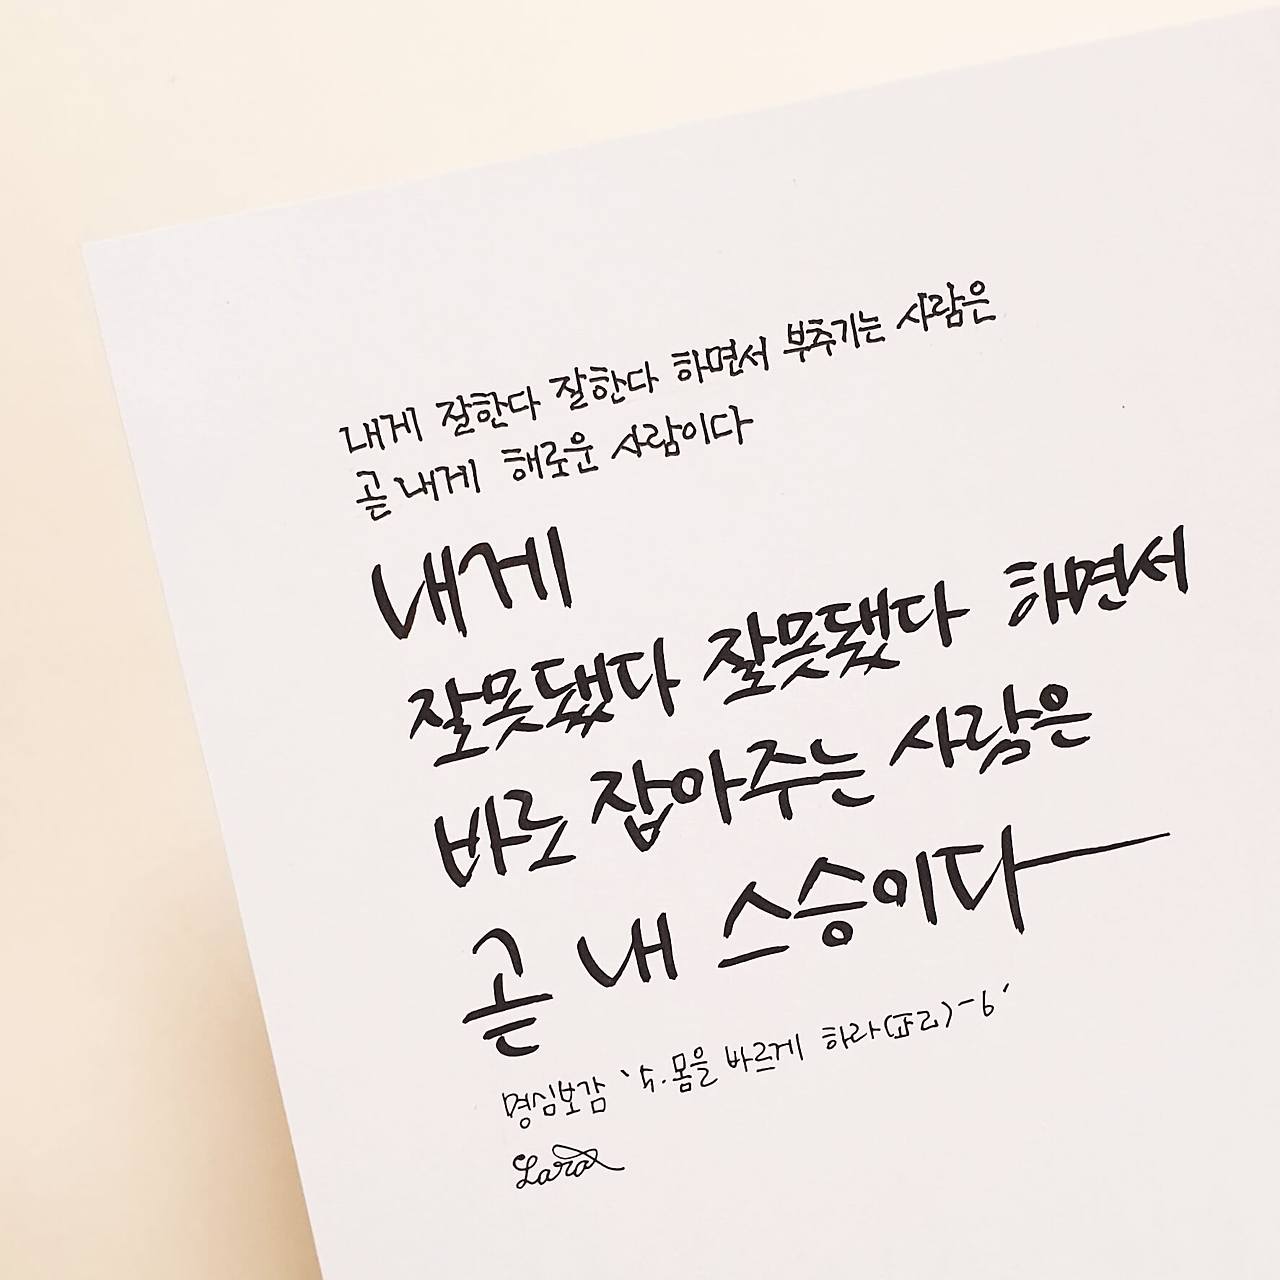 내게 잘한다 잘한다 하면서 부추기는 사람은
곧 내게 해로운 사람이다
내게
잘못됐다 잘못됐다 하면서
바로 잡아주는 사람은
곧 내 스승이다
명심보감 '5.몸을 바르게 하라(正己)-6'
Lara